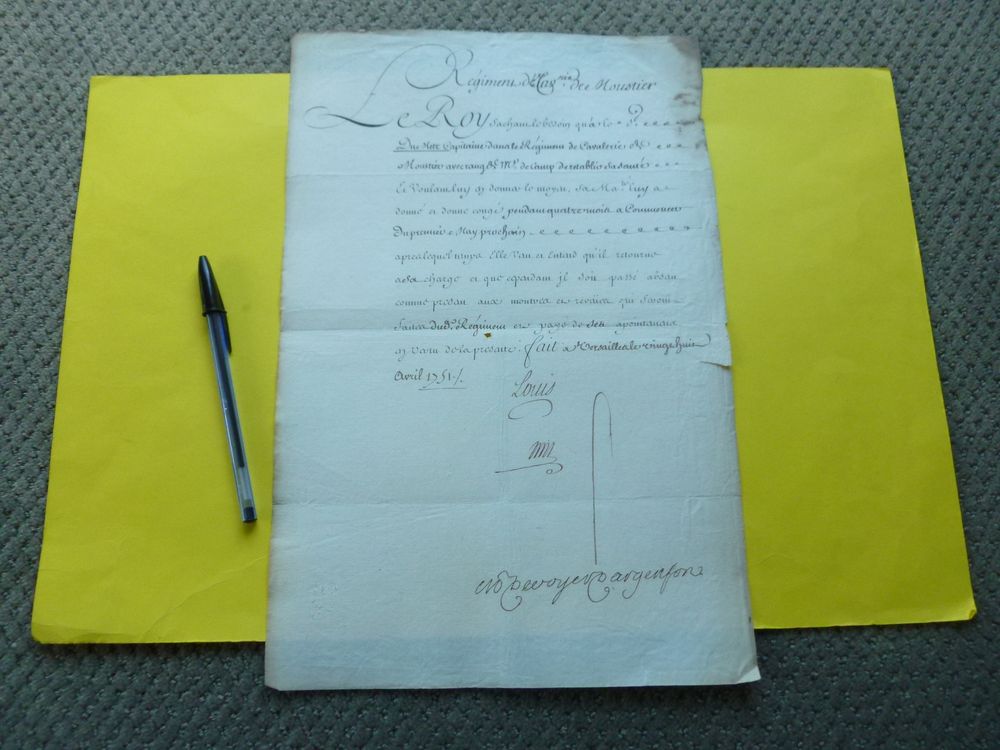 Régiment de Cav.rie de Moustier
Le Roy Sachant le besoin qu'a le S.
Capitaine dans le Régiment de Cavalerie de
Moustier avec rang de M.e de Camp de retablir sa santé
Et Voulant luy en donner le moyen, Sa Ma.té luy a
donné et donne congé pendant quatre mois a Commencer
Du premier May prochain
apres lequel temps Elle Veut et Entend qu'il retourne
a sa charge et que cependant il soit passé absent
comme present aux montres et reveües qui se
dud. Régiment et payé de ses apointemens
en Vertu de la presente. fait a Versailles le vingt huit
Avril 1751./.
Louis
M de voyer d'argenson